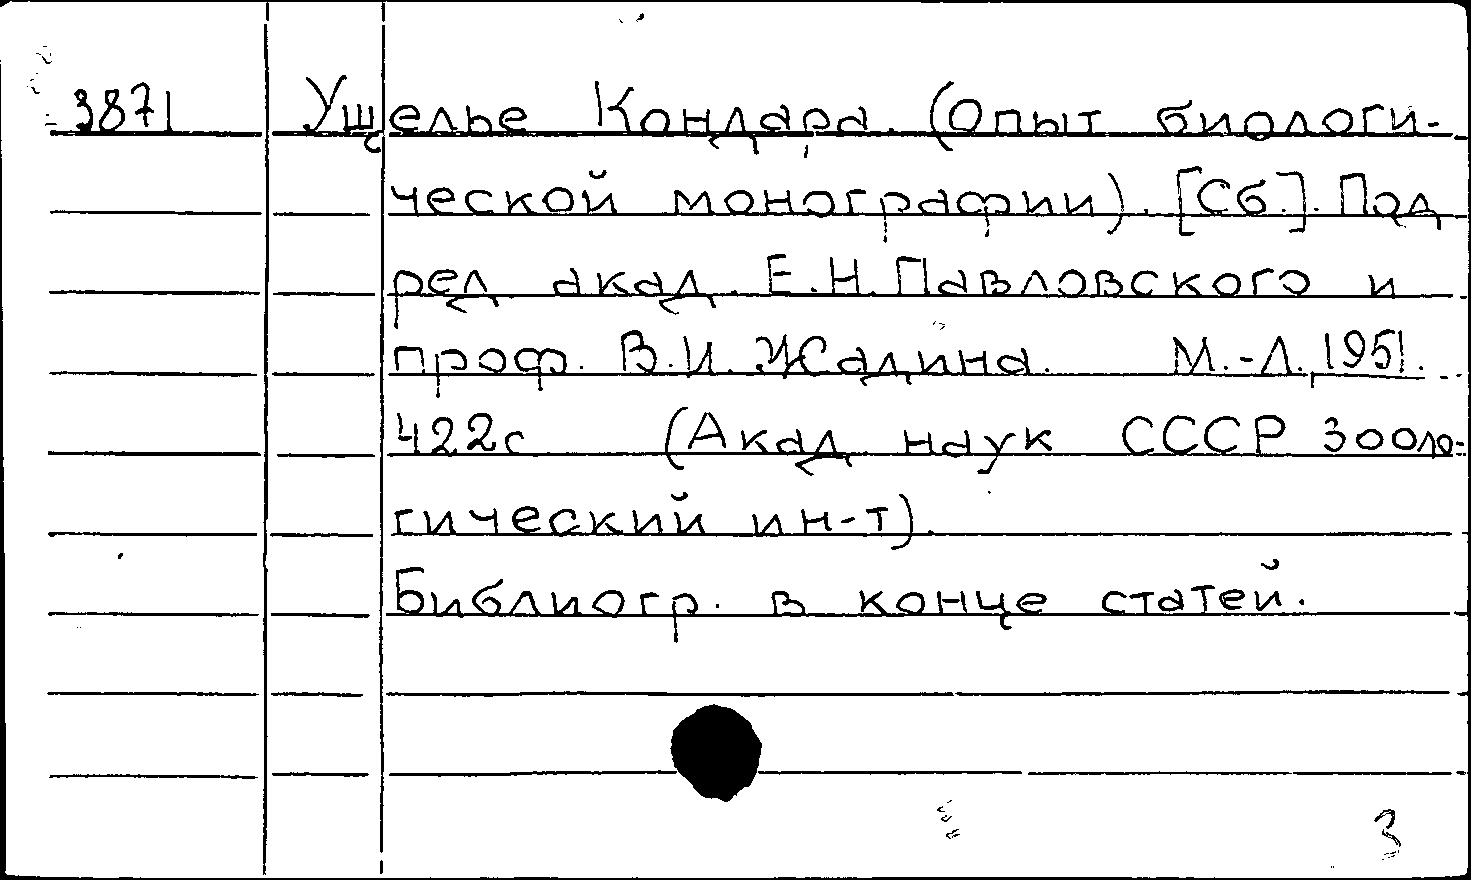 3871 Ущелье Кондара. (Опыт биологи-
ческой монографии). [Сб.]. Под
ред акад. Е.Н. Павловского и
проф. В.И. Жадина. М.-Л., 1951.
422с (Акад наук СССР Зооло-
гический ин-т).
Библиогр. в конце статей.
3